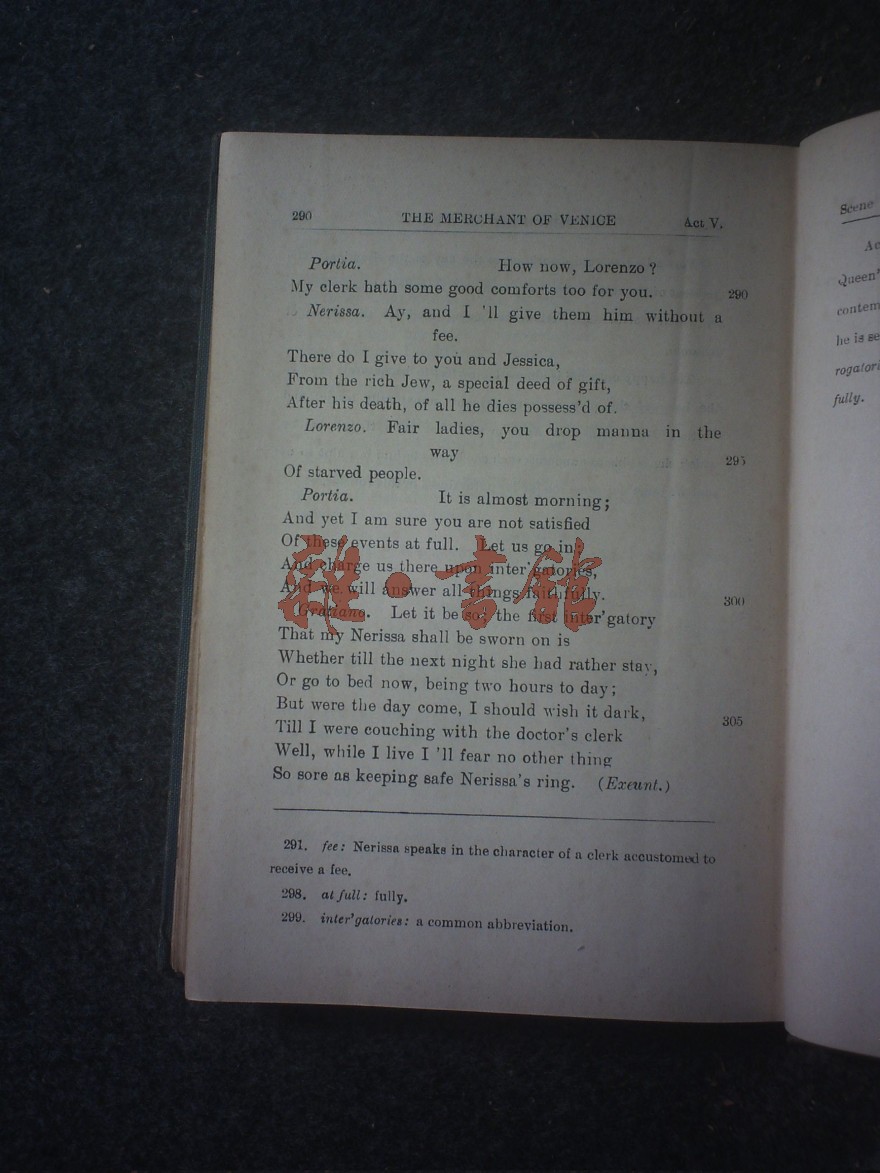 290 THE MERCHANT OF VENICE Act V.
Portia. How now, Lorenzo?
My clerk hath some good comforts too for you. 290
Nerissa. Ay, and I 'll give them him without a
fee.
There do I give to you and Jessica,
From the rich Jew, a special deed of gift,
After his death, of all he dies possess'd of.
Lorenzo. Fair ladies, you drop manna in the
way 295
Of starved people.
Portia. It is almost morning;
And yet I am sure you are not satisfied
Of these events at full. Let us go in;
And charge us there upon inter'gatories,
And we will answer all things faithfully. 300
Gratiano. Let it be so: the first inter'gatory
That my Nerissa shall be sworn on is
Whether till the next night she had rather stay,
Or go to bed now, being two hours to day;
But were the day come, I should wish it dark, 305
Till I were couching with the doctor's clerk
Well, while I live I 'll fear no other thing
So sore as keeping safe Nerissa's ring. (Exeunt.)
291. fee: Nerissa speaks in the character of a clerk accustomed to
receive a fee.
298. at full: fully.
299. inter'gatories: a common abbreviation.
雜·書館
Scene
Ac
Queen'
contem
he is se
rogatori
fully.